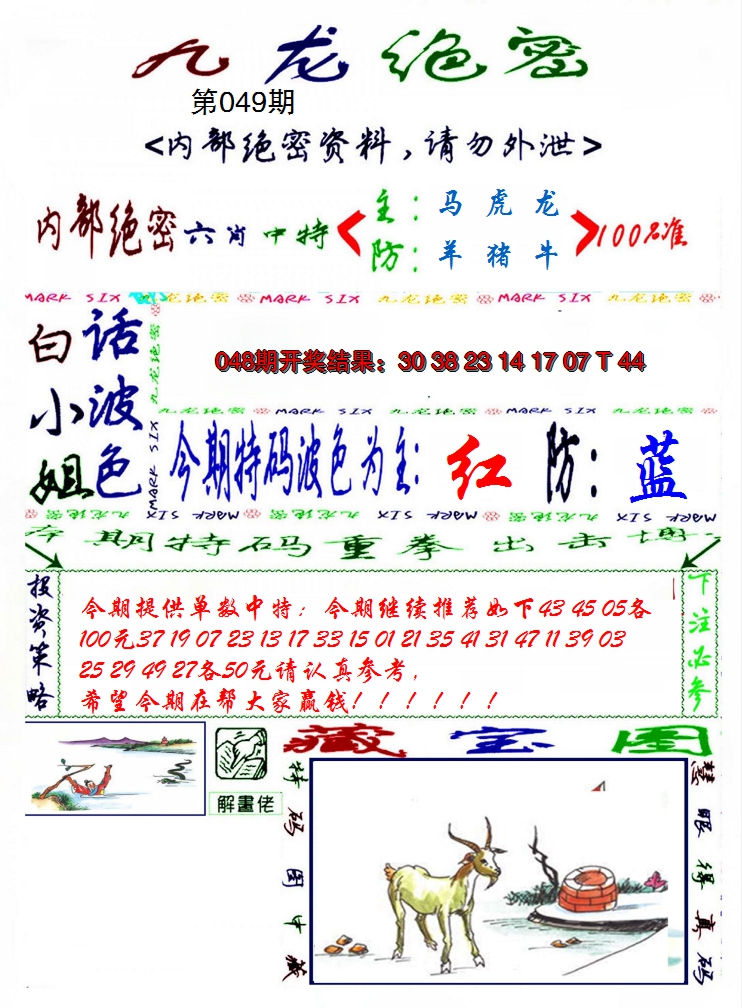 九龙绝密
第049期
<内部绝密资料，请勿外泄>
内部绝密六肖中特
主：马 虎 龙
防：羊 猪 牛
100%准
MARK SIX 九龙绝密 MARK SIX 九龙绝密 MARK SIX 九龙绝密
白小姐
话波色
九龙绝密 MARK SIX
048期开奖结果：30 38 23 14 17 07 T 44
九龙绝密 MARK SIX 九龙绝密 MARK SIX 九龙绝密
今期特码波色为主：红 防：蓝
MARK SIX 九龙绝密 MARK SIX 九龙绝密 MARK SIX 九龙绝密
本期特码重拳出击博
投资策略
今期提供单数中特；今期继续推荐如下43 45 05各
100元37 19 07 23 13 17 33 15 01 21 35 41 31 47 11 39 03
25 29 49 27各50元请认真参考，
希望今期在帮大家赢钱！！！！！！
下注必参
解畫佬
藏宝图
特码图中藏
慧眼得真码